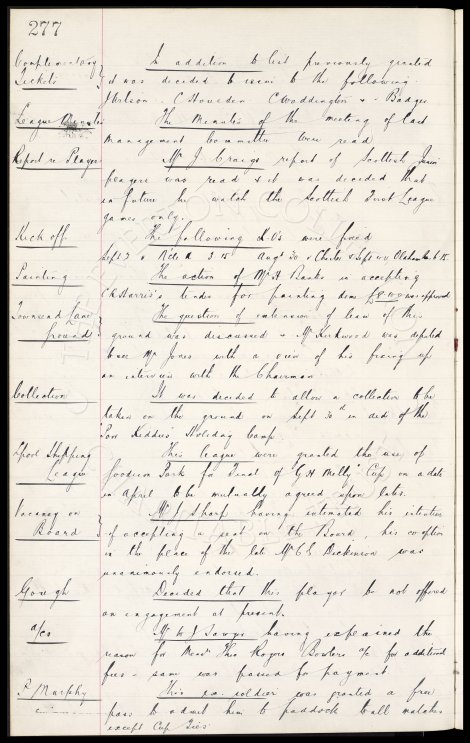 277
Complimentary Tickets
In addition to list previously granted
it was decided to issue to the following
J Wilson. C Howeden C Waddington & - Badger
League Minutes
The Minutes of the meeting of last
Management Committee were read
Report re Players
Mr J Craigs report of Scottish Junior
players was read & it was decided that
in future he watch the Scottish First League
games only.
Kick off
The following K.O's were fixed
Painting
The action of Mr H Banks in accepting
C R Harris's tender for painting done was approved
Townsend Lane Ground
The question of extension of lease of this
ground was discussed & Mr Kirkwood was deputed
to see Mr Jones with a view of his fixing up
an interview with the Chairman
Collection
It was decided to allow a collection to be
taken on the ground on Sept 30th in aid of the
Poor Kiddies Holiday Camp.
L'pool Shipping League
This league were granted the use of
Goodison Park for Final of "G H Melly" Cup on a date
in April to be mutually agreed upon later.
Vacancy on Board
Mr J Sharp having intimated his intention
of accepting a seat on the Board, his co-option
in the place of the late Mr C E Dickinson was
unanimously endorsed.
Decided that this player be not offered
an engagement at present.
a/cs
Mr W J Sawyer having explained the
reason for Messrs Theo Rogers Bowlers a/c for additional
fees - same was passed for payment
P. Murphy
This ex-soldier was granted a free
pass to admit him to paddock to all matches
except Cup Ties